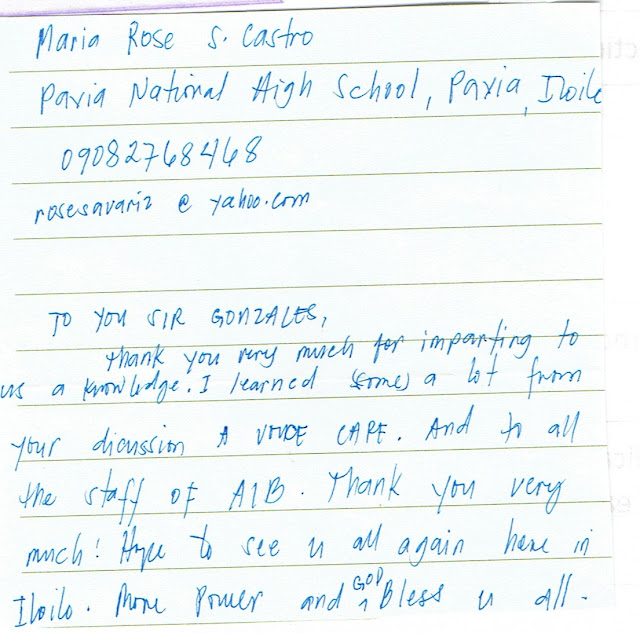 Maria Rose S. Castro
Pavia National High School, Pavia, Iloilo
09082768468
rosesavariz @ yahoo.com
TO YOU SIR GONZALES,
Thank you very much for imparting to
us a knowledge. I learned (some) a lot from
your dicussion A VOICE CAFE. And to all
the staff of AIB. Thank you very
much! Hope to see u all again here in
Iloilo. More Power and GOD Bless u all.